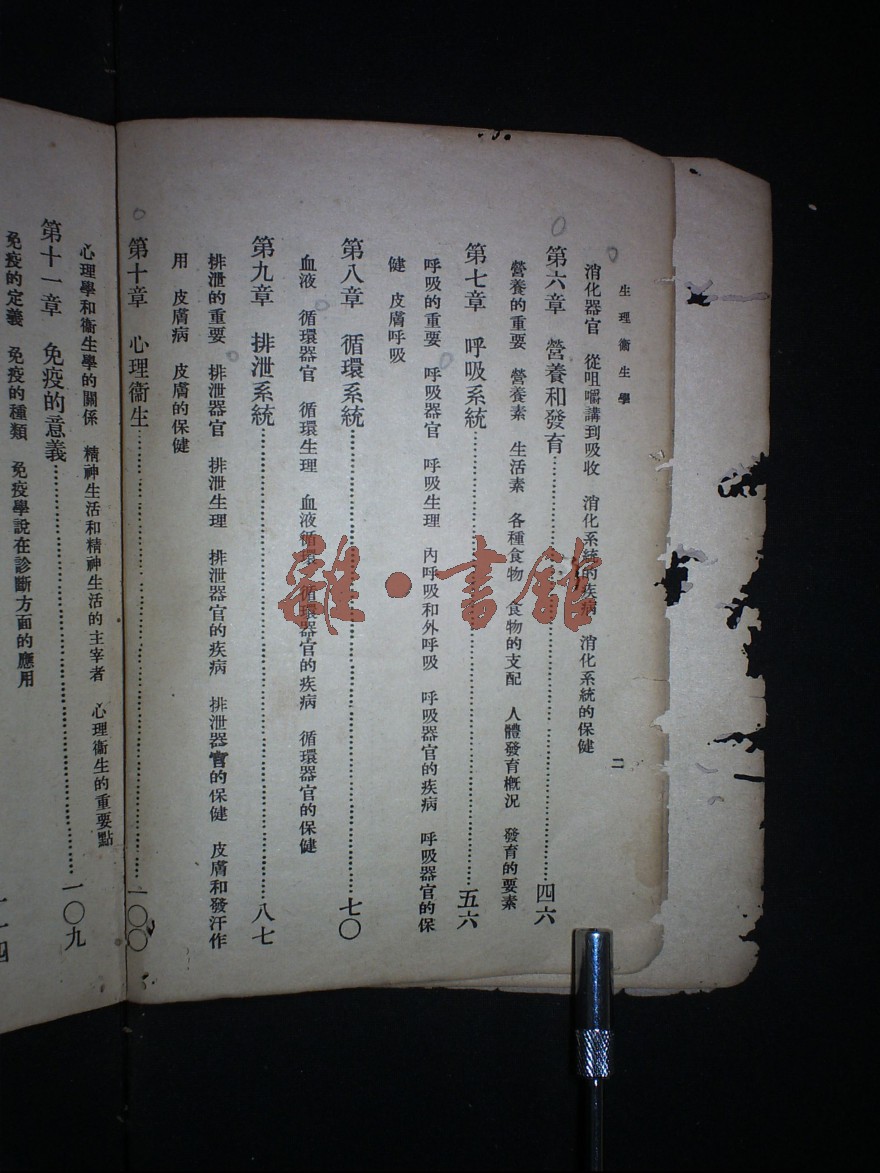 生理衞生學
二
消化器官 從咀嚼講到吸收 消化系統的疾病 消化系統的保健
第六章 營養和發育……四六
營養的重要 營養素 生活素 各種食物 食物的支配 人體發育概況 發育的要素
第七章 呼吸系統……五六
呼吸的重要 呼吸器官 呼吸生理 內呼吸和外呼吸 呼吸器官的疾病 呼吸器官的保
健 皮膚呼吸
第八章 循環系統……七〇
血液 循環器官 循環生理 血液循環 循環器官的疾病 循環器官的保健
第九章 排泄系統……八七
排泄的重要 排泄器官 排泄生理 排泄器官的疾病 排泄器官的保健 皮膚和發汗作
用 皮膚病 皮膚的保健
第十章 心理衞生……一〇〇
心理學和衞生學的關係 精神生活和精神生活的主宰者 心理衞生的重要點
第十一章 免疫的意義……一〇九
免疫的定義 免疫的種類 免疫學說在診斷方面的應用
雜·書館